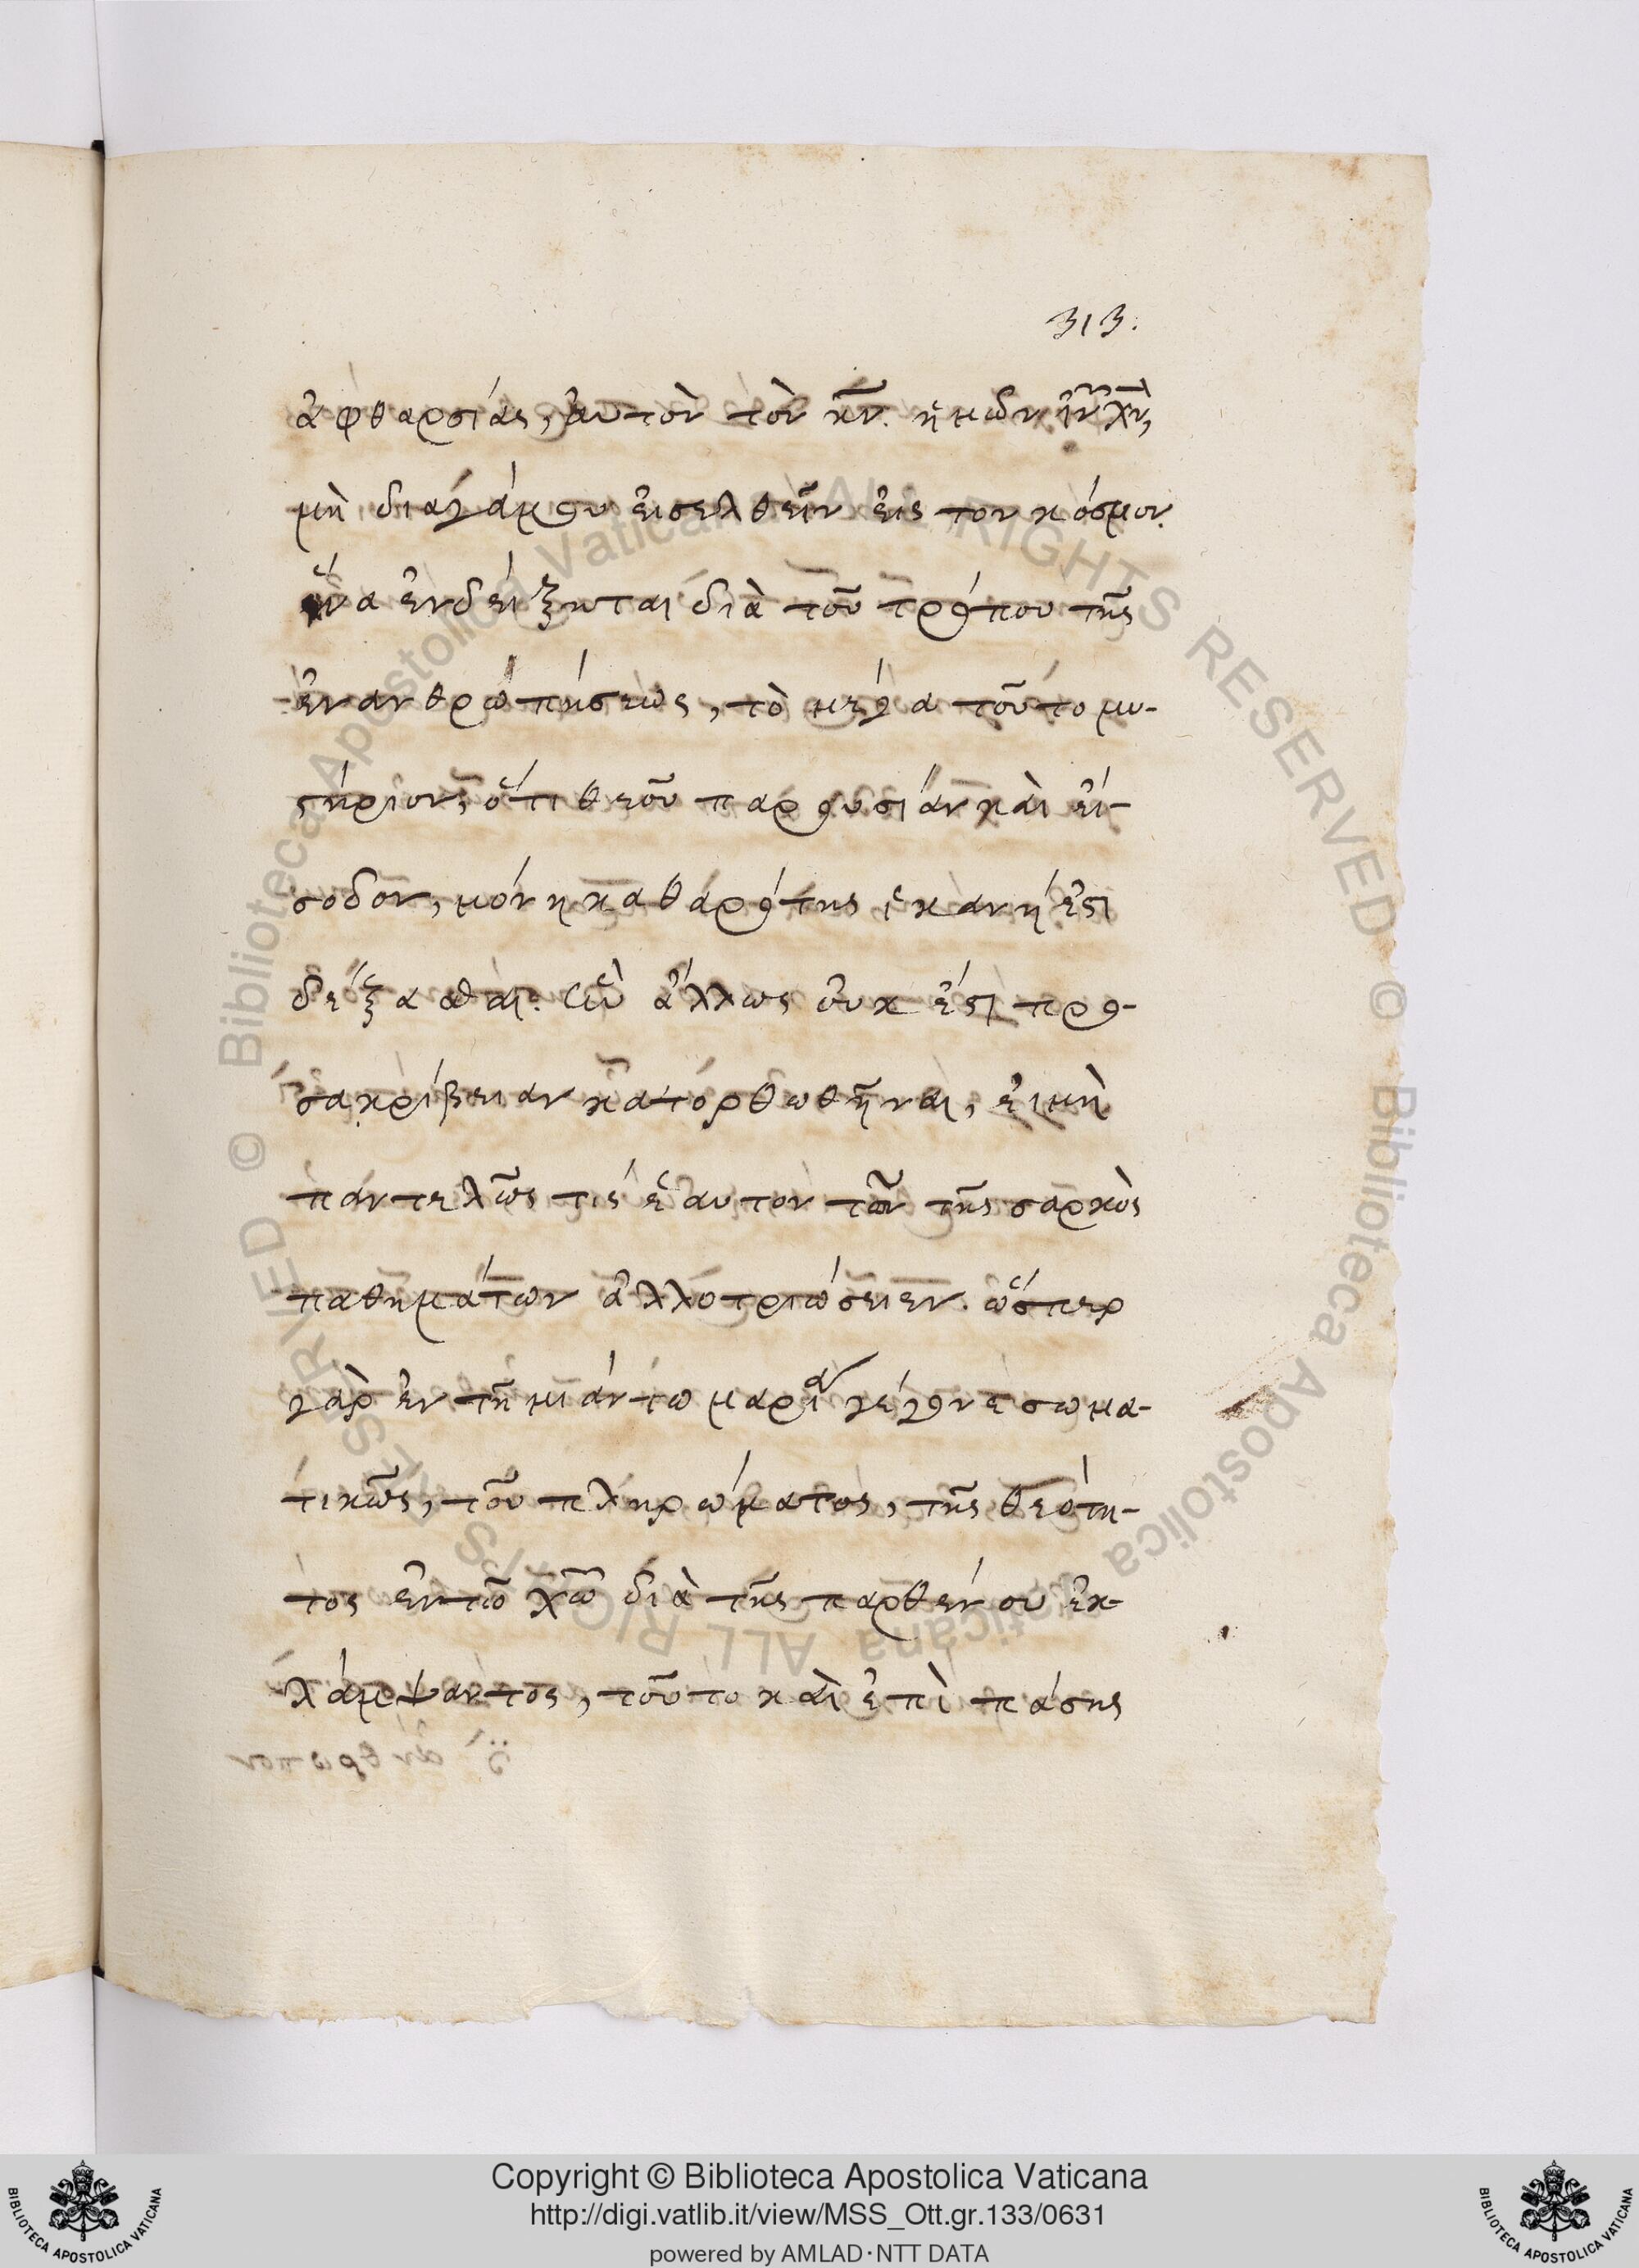 313.
ἀφθαρσίας, ἀυτὸν τὸν κ̅ν̅. ἡμῶν ἰ̅ν̅ χ̅ν̅,
μὴ διαγάμου ἐισελθεῖν ἐις τον κόσμον.
ἵνα ἐνδείξηται διὰ τοῦ τρόπου τῆς
ἐνανθρωπήσεως, τὸ μέγα τοῦτο μυ-
ϛήριον, ὅτι θεοῦ παρουσίαν καὶ ἐί-
σοδον, μόνη καθαρότης ἱκανή ἐϛι
δέξασθαι. ὃν ἄλλως ὀυκ ἔϛι προ-
σακρίβειαν κατορθωθῆναι, ἐι μὴ
παντελῶς τις ἑαυτον τῶν τῆς σαρκὸς
παθημάτων ἀλλοτριώσειεν. ὥσπερ
γὰρ ἐν τῇ μιάντω μαρία γέγονε σωμα-
τικῶς, τοῦ πληρώματος, τῆς θεότη-
τος ἐν τῶ χ̅ω̅ διὰ τῆς παρθένου ἐκ-
λάμψαντος, τοῦτο καὶ ἐπὶ πάσης
Copyright © Biblioteca Apostolica Vaticana
http://digi.vatlib.it/view/MSS_Ott.gr.133/0631
powered by AMLAD·NTT DATA
BIBLIOTECA APOSTOLICA VATICANA
BIBLIOTECA APOSTOLICA VATICANA
© Biblioteca Apostolica Vaticana ALL RIGHTS RESERVED © Biblioteca Apostolica Vaticana ALL RIGHTS RESERVED